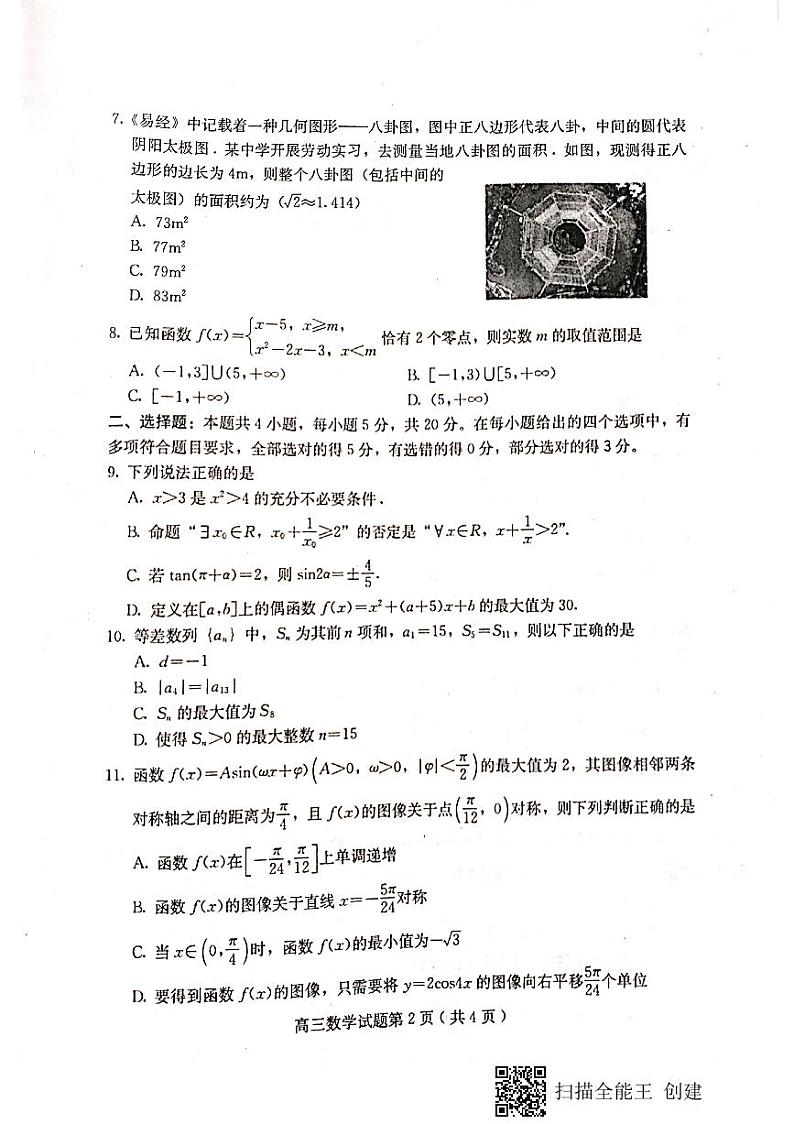 7.《易经》中记载着一种几何图形——八卦图，图中正八边形代表八卦，中间的圆代表
阴阳太极图．某中学开展劳动实习，去测量当地八卦图的面积．如图，现测得正八
边形的边长为4m，则整个八卦图（包括中间的
太极图）的面积约为（√2≈1.414）
A. 73m²
B. 77m²
C. 79m²
D. 83m²
8. 已知函数 f(x)={x−5，x⩾m，x²−2x−3，x<m 恰有2个零点，则实数m的取值范围是
A. (−1,3]∪(5,+∞) B. [−1,3)∪[5,+∞)
C. [−1,+∞) D. (5,+∞)
二、选择题：本题共4小题，每小题5分，共20分。在每小题给出的四个选项中，有
多项符合题目要求，全部选对的得5分，有选错的得0分，部分选对的得3分。
9. 下列说法正确的是
A. x>3是x²>4的充分不必要条件．
B. 命题“∃x₀∈R，x₀+1/x₀⩾2”的否定是“∀x∈R，x+1/x>2”.
C. 若tan(π+α)=2，则sin2α=±4/5.
D. 定义在[a,b]上的偶函数f(x)=x²+(a+5)x+b的最大值为30.
10. 等差数列{aₙ}中，Sₙ为其前n项和，a₁=15，S₅=S₁₁，则以下正确的是
A. d=−1
B. |a₄|=|a₁₃|
C. Sₙ的最大值为S₈
D. 使得Sₙ>0的最大整数n=15
11. 函数f(x)=Asin(ωx+φ)(A>0，ω>0，|φ|<π/2)的最大值为2，其图像相邻两条
对称轴之间的距离为π/4，且f(x)的图像关于点(π/12，0)对称，则下列判断正确的是
A. 函数f(x)在[−π/24,π/12]上单调递增
B. 函数f(x)的图像关于直线x=−5π/24对称
C. 当x∈(0,π/4)时，函数f(x)的最小值为−√3
D. 要得到函数f(x)的图像，只需要将y=2cos4x的图像向右平移5π/24个单位
高三数学试题第2页（共4页）
扫描全能王 创建